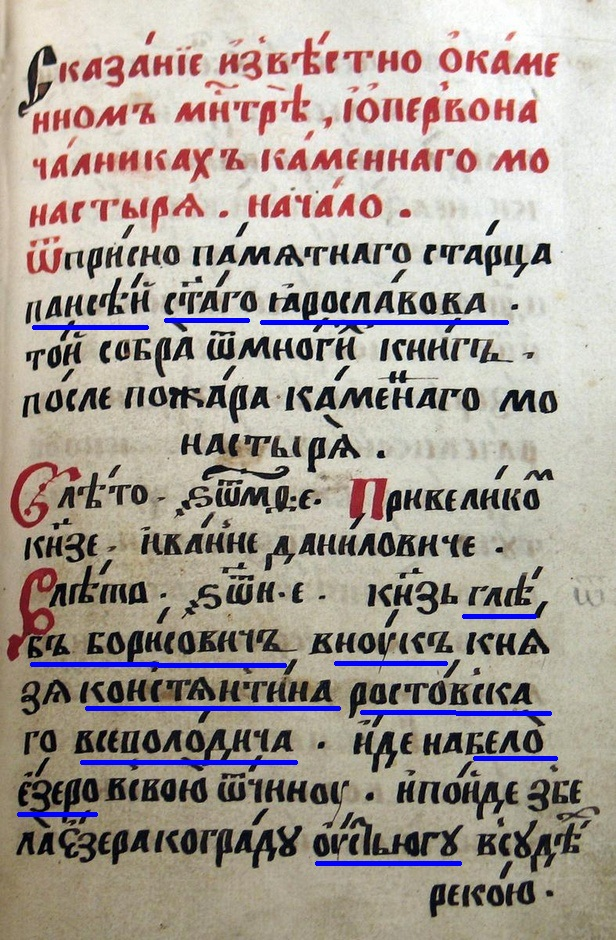 Сказа́нїе и҆звѣ́стно ѡ҆ка́ме
нномъ мн҃трѣ̀, і҆ѻ҆перʼвона
ча́лникахъ ка́меннаго мо
настырѧ̀. нача́ло.
Ѿпри́сно па́мѧтнаго ста́рца
паисѣ́й ст҃а́го ꙗ҆росла́вова.
то́й собра̀ ѿмноги́х кни́гъ.
по́сле пожа́ра ка́меннаго мо
настырѧ̀.
Влѣ́то. ҂ѕѿмѳ҃.е. Привелико́м
кн҃зе. и҆ва́нне дани́ловиче.
Влѣ́та. ҂ѕѿн҃.е. кн҃зь глѣ́
бъ бори́совичъ вноу́къ кнѧ
зѧ констѧнти́на росто́вска
го всеволо́дича. и҆́де набе́ло
е҆́зеро всвою̀ ѿ́чинноу. и҆по́йде збе
лае҆́зера коᲂгра́ду оу҆́стьюгу всу́дѣ
реко́ю.